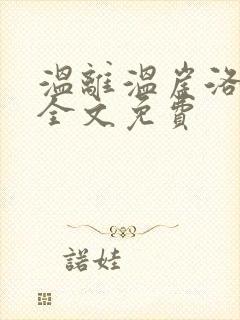 溫離溫崖洛
全文免費
諾娃